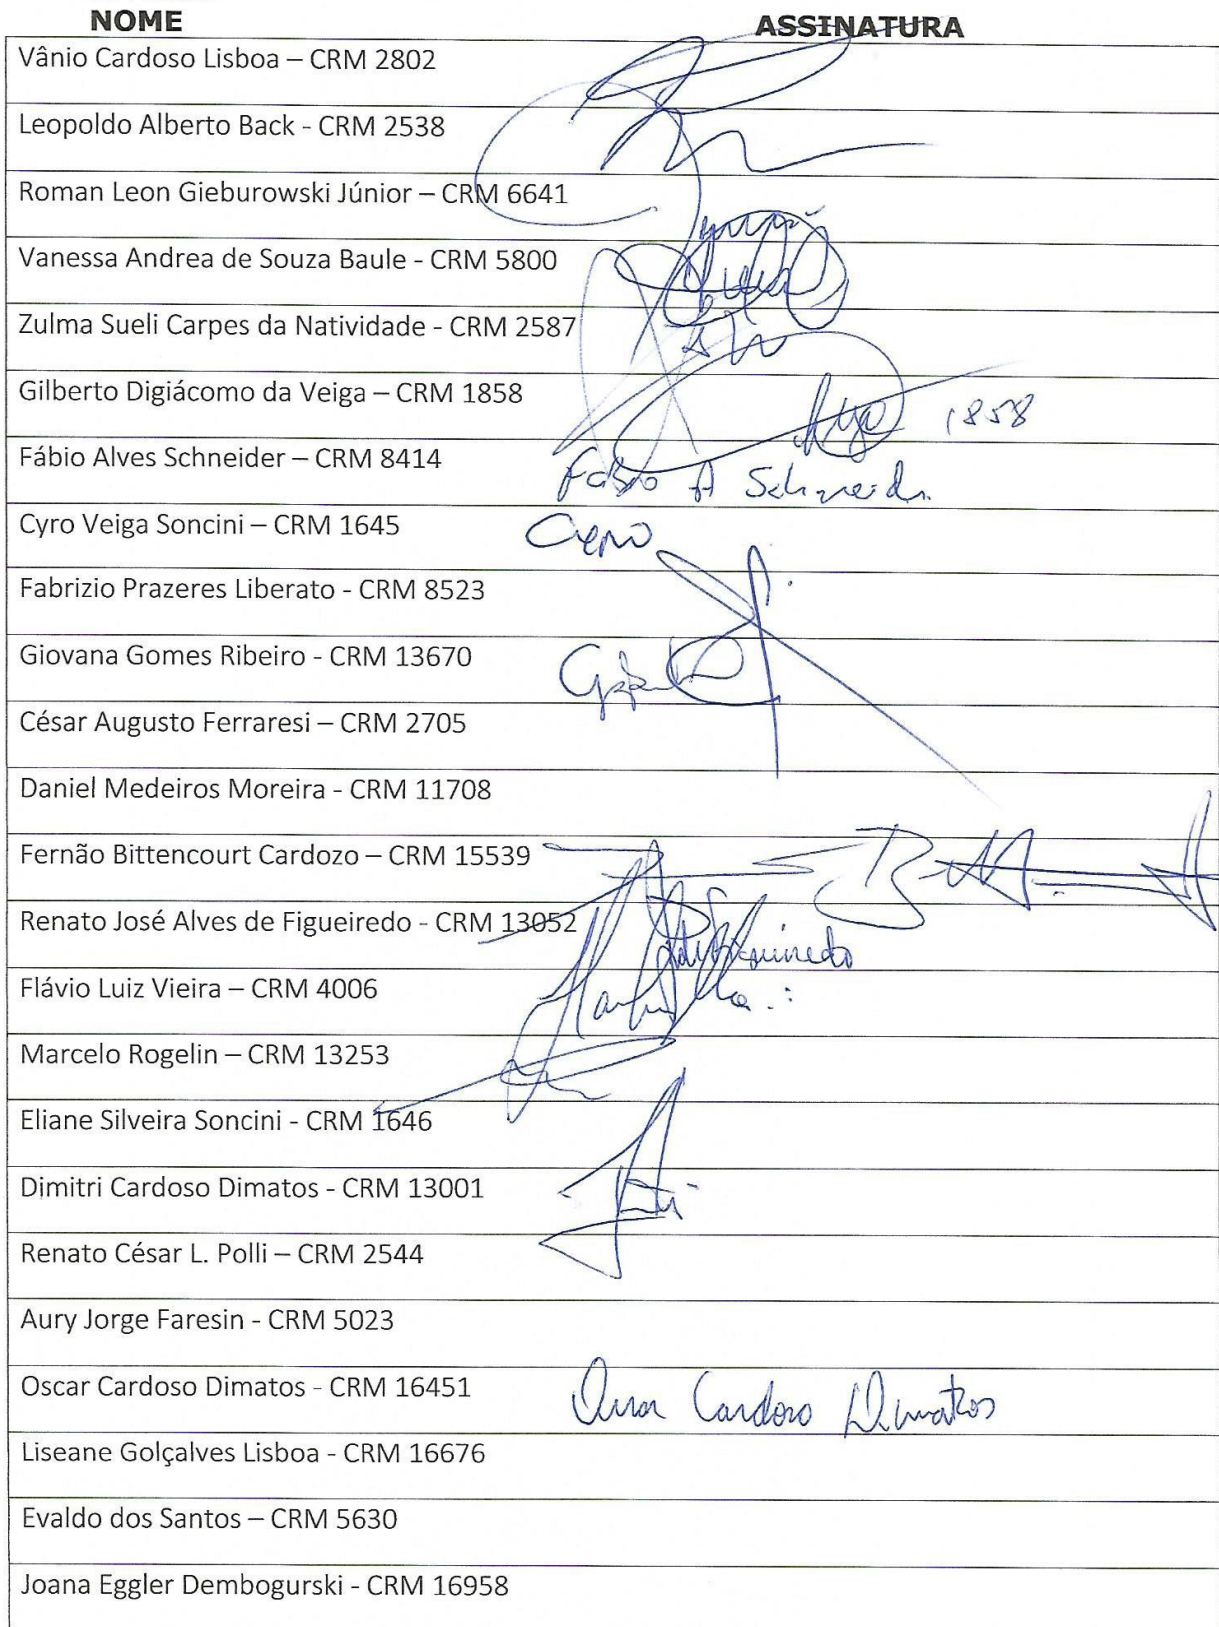 NOME ASSINATURA
Vânio Cardoso Lisboa – CRM 2802
Leopoldo Alberto Back - CRM 2538
Roman Leon Gieburowski Júnior – CRM 6641
Vanessa Andrea de Souza Baule - CRM 5800
Zulma Sueli Carpes da Natividade - CRM 2587
Gilberto Digiácomo da Veiga – CRM 1858 1858
Fábio Alves Schneider – CRM 8414 Fabio A Schneider
Cyro Veiga Soncini – CRM 1645 Cyro
Fabrizio Prazeres Liberato - CRM 8523
Giovana Gomes Ribeiro - CRM 13670
César Augusto Ferraresi – CRM 2705
Daniel Medeiros Moreira - CRM 11708
Fernão Bittencourt Cardozo – CRM 15539
Renato José Alves de Figueiredo - CRM 13052
Flávio Luiz Vieira – CRM 4006
Marcelo Rogelin – CRM 13253
Eliane Silveira Soncini - CRM 1646
Dimitri Cardoso Dimatos - CRM 13001
Renato César L. Polli – CRM 2544
Aury Jorge Faresin - CRM 5023
Oscar Cardoso Dimatos - CRM 16451 Oscar Cardoso Dimatos
Liseane Golçalves Lisboa - CRM 16676
Evaldo dos Santos – CRM 5630
Joana Eggler Dembogurski - CRM 16958